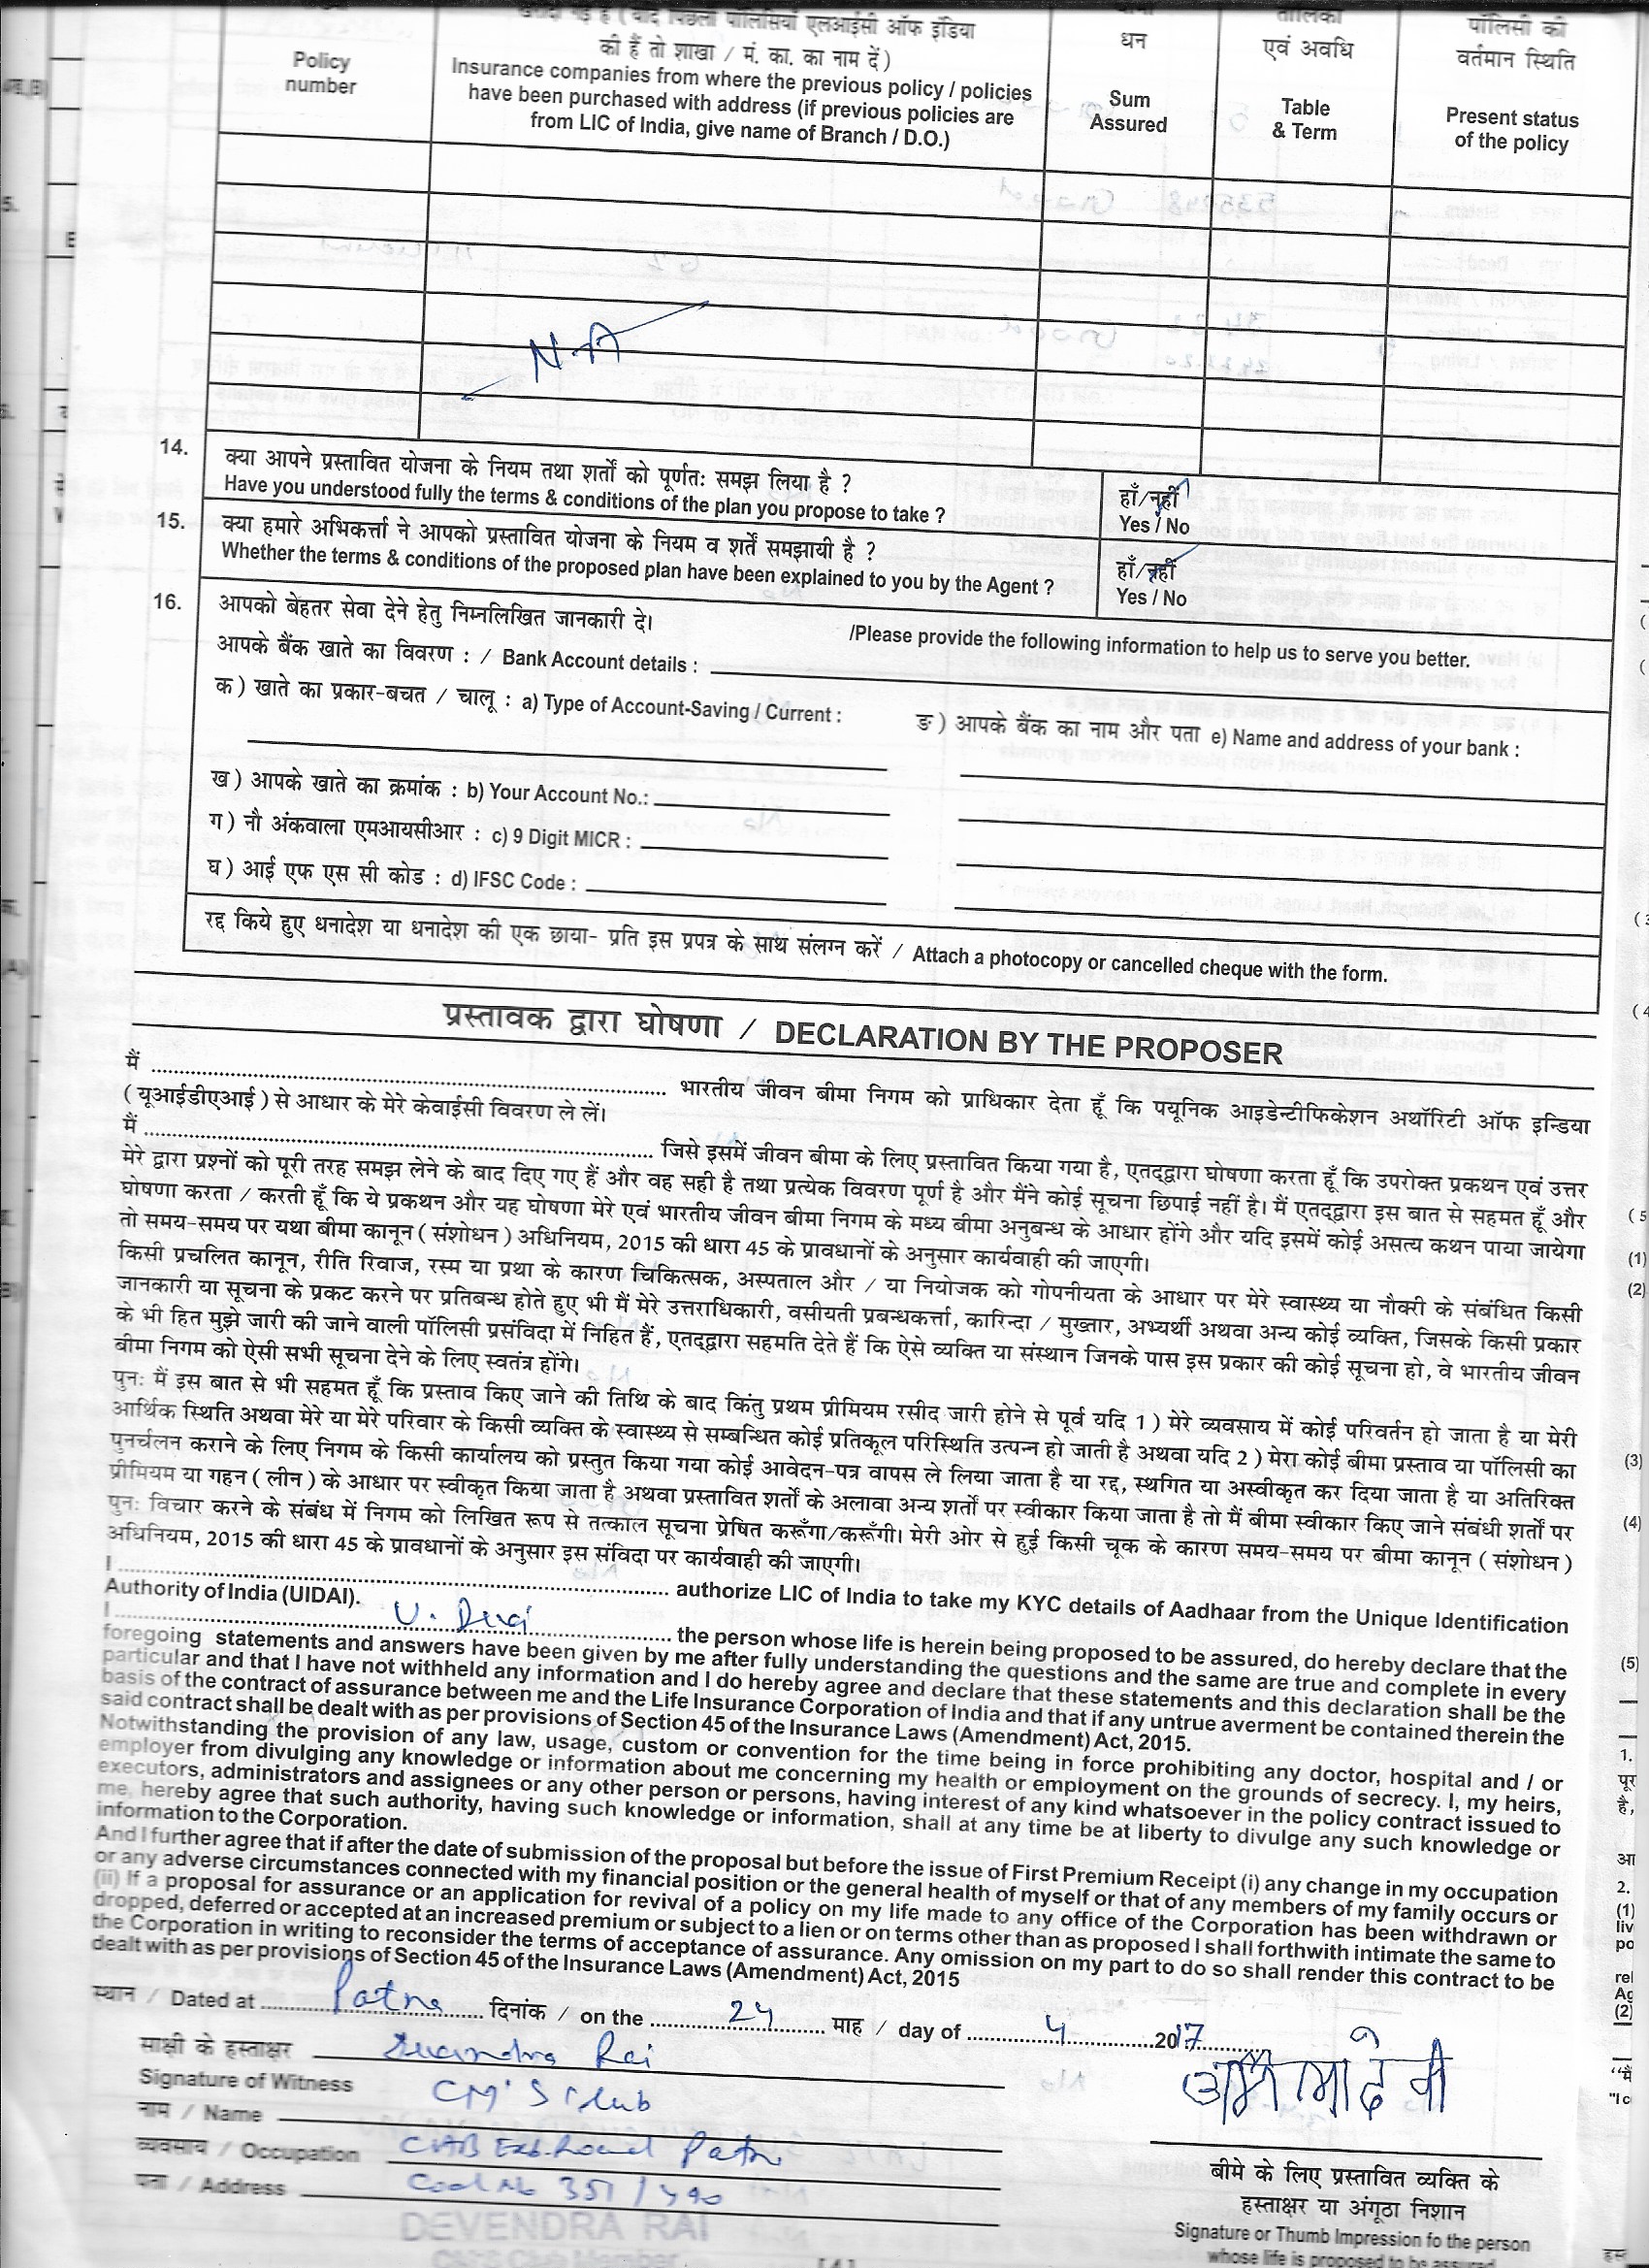 खरीदी गई है (यदि पिछली पॉलिसियाँ एलआईसी ऑफ इंडिया
की हैं तो शाखा / मं. का. का नाम दें)
Policy
number
Insurance companies from where the previous policy / policies
have been purchased with address (if previous policies are
from LIC of India, give name of Branch / D.O.)
धन
Sum
Assured
तालिका
एवं अवधि
Table
& Term
पॉलिसी की
वर्तमान स्थिति
Present status
of the policy
N.A
14. क्या आपने प्रस्तावित योजना के नियम तथा शर्तों को पूर्णतः समझ लिया है ?
Have you understood fully the terms & conditions of the plan you propose to take ?
हाँ/नहीं
Yes / No
15. क्या हमारे अभिकर्त्ता ने आपको प्रस्तावित योजना के नियम व शर्तें समझायी है ?
Whether the terms & conditions of the proposed plan have been explained to you by the Agent ?
हाँ/नहीं
Yes / No
16. आपको बेहतर सेवा देने हेतु निम्नलिखित जानकारी दे।
/Please provide the following information to help us to serve you better.
आपके बैंक खाते का विवरण : / Bank Account details :
क) खाते का प्रकार-बचत / चालू : a) Type of Account-Saving / Current :
ङ) आपके बैंक का नाम और पता e) Name and address of your bank :
ख) आपके खाते का क्रमांक : b) Your Account No.:
ग) नौ अंकवाला एमआयसीआर : c) 9 Digit MICR :
घ) आई एफ एस सी कोड : d) IFSC Code :
रद्द किये हुए धनादेश या धनादेश की एक छाया- प्रति इस प्रपत्र के साथ संलग्न करें / Attach a photocopy or cancelled cheque with the form.
प्रस्तावक द्वारा घोषणा / DECLARATION BY THE PROPOSER
मैं ........ भारतीय जीवन बीमा निगम को प्राधिकार देता हूँ कि पयूनिक आइडेन्टीफिकेशन अथॉरिटी ऑफ इन्डिया
(यूआईडीएआई) से आधार के मेरे केवाईसी विवरण ले लें।
मैं ........ जिसे इसमें जीवन बीमा के लिए प्रस्तावित किया गया है, एतद्द्वारा घोषणा करता हूँ कि उपरोक्त प्रकथन एवं उत्तर
मेरे द्वारा प्रश्नों को पूरी तरह समझ लेने के बाद दिए गए हैं और वह सही है तथा प्रत्येक विवरण पूर्ण है और मैंने कोई सूचना छिपाई नहीं है। मैं एतद्द्वारा इस बात से सहमत हूँ और
घोषणा करता / करती हूँ कि ये प्रकथन और यह घोषणा मेरे एवं भारतीय जीवन बीमा निगम के मध्य बीमा अनुबन्ध के आधार होंगे और यदि इसमें कोई असत्य कथन पाया जायेगा
तो समय-समय पर यथा बीमा कानून (संशोधन) अधिनियम, 2015 की धारा 45 के प्रावधानों के अनुसार कार्यवाही की जाएगी।
किसी प्रचलित कानून, रीति रिवाज, रस्म या प्रथा के कारण चिकित्सक, अस्पताल और / या नियोजक को गोपनीयता के आधार पर मेरे स्वास्थ्य या नौकरी के संबंधित किसी
जानकारी या सूचना के प्रकट करने पर प्रतिबन्ध होते हुए भी मैं मेरे उत्तराधिकारी, वसीयती प्रबन्धकर्त्ता, कारिन्दा / मुख्तार, अभ्यर्थी अथवा अन्य कोई व्यक्ति, जिसके किसी प्रकार
के भी हित मुझे जारी की जाने वाली पॉलिसी प्रसंविदा में निहित हैं, एतद्द्वारा सहमति देते हैं कि ऐसे व्यक्ति या संस्थान जिनके पास इस प्रकार की कोई सूचना हो, वे भारतीय जीवन
बीमा निगम को ऐसी सभी सूचना देने के लिए स्वतंत्र होंगे।
पुनः मैं इस बात से भी सहमत हूँ कि प्रस्ताव किए जाने की तिथि के बाद किंतु प्रथम प्रीमियम रसीद जारी होने से पूर्व यदि 1) मेरे व्यवसाय में कोई परिवर्तन हो जाता है या मेरी
आर्थिक स्थिति अथवा मेरे या मेरे परिवार के किसी व्यक्ति के स्वास्थ्य से सम्बन्धित कोई प्रतिकूल परिस्थिति उत्पन्न हो जाती है अथवा यदि 2) मेरा कोई बीमा प्रस्ताव या पॉलिसी का
पुनर्चलन कराने के लिए निगम के किसी कार्यालय को प्रस्तुत किया गया कोई आवेदन-पत्र वापस ले लिया जाता है या रद्द, स्थगित या अस्वीकृत कर दिया जाता है या अतिरिक्त
प्रीमियम या गहन (लीन) के आधार पर स्वीकृत किया जाता है अथवा प्रस्तावित शर्तों के अलावा अन्य शर्तों पर स्वीकार किया जाता है तो मैं बीमा स्वीकार किए जाने संबंधी शर्तों पर
पुनः विचार करने के संबंध में निगम को लिखित रूप से तत्काल सूचना प्रेषित करूँगा/करूँगी। मेरी ओर से हुई किसी चूक के कारण समय-समय पर बीमा कानून (संशोधन)
अधिनियम, 2015 की धारा 45 के प्रावधानों के अनुसार इस संविदा पर कार्यवाही की जाएगी।
I ........ authorize LIC of India to take my KYC details of Aadhaar from the Unique Identification
Authority of India (UIDAI).
I ........ U. Devi ........ the person whose life is herein being proposed to be assured, do hereby declare that the
foregoing statements and answers have been given by me after fully understanding the questions and the same are true and complete in every
particular and that I have not withheld any information and I do hereby agree and declare that these statements and this declaration shall be the
basis of the contract of assurance between me and the Life Insurance Corporation of India and that if any untrue averment be contained therein the
said contract shall be dealt with as per provisions of Section 45 of the Insurance Laws (Amendment) Act, 2015.
Notwithstanding the provision of any law, usage, custom or convention for the time being in force prohibiting any doctor, hospital and / or
employer from divulging any knowledge or information about me concerning my health or employment on the grounds of secrecy. I, my heirs,
executors, administrators and assignees or any other person or persons, having interest of any kind whatsoever in the policy contract issued to
me, hereby agree that such authority, having such knowledge or information, shall at any time be at liberty to divulge any such knowledge or
information to the Corporation.
And I further agree that if after the date of submission of the proposal but before the issue of First Premium Receipt (i) any change in my occupation
or any adverse circumstances connected with my financial position or the general health of myself or that of any members of my family occurs or
(ii) If a proposal for assurance or an application for revival of a policy on my life made to any office of the Corporation has been withdrawn or
dropped, deferred or accepted at an increased premium or subject to a lien or on terms other than as proposed I shall forthwith intimate the same to
the Corporation in writing to reconsider the terms of acceptance of assurance. Any omission on my part to do so shall render this contract to be
dealt with as per provisions of Section 45 of the Insurance Laws (Amendment) Act, 2015
स्थान / Dated at Patna दिनांक / on the 24 माह / day of 4 2017
साक्षी के हस्ताक्षर
Signature of Witness
Rai
CM'S Club
नाम / Name
व्यवसाय / Occupation CIAB Exb. Road Patna
पता / Address Code No 351/490
DEVENDRA RAI
Club Member
उर्मिला देवी
बीमे के लिए प्रस्तावित व्यक्ति के
हस्ताक्षर या अंगूठा निशान
Signature or Thumb Impression fo the person
whose life is proposed to be assured